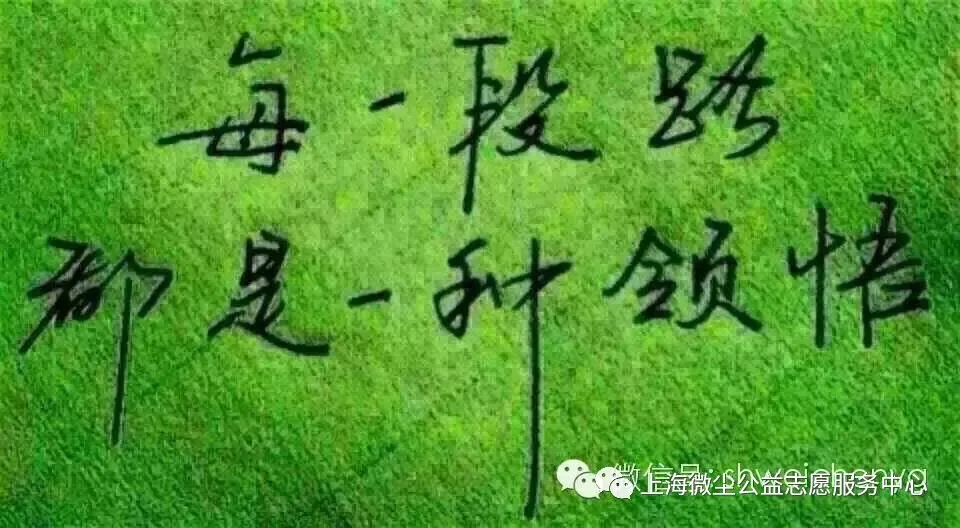 每一段路
都是一种领悟
微信号: shweichenyg
上海微尘公益志愿服务中心